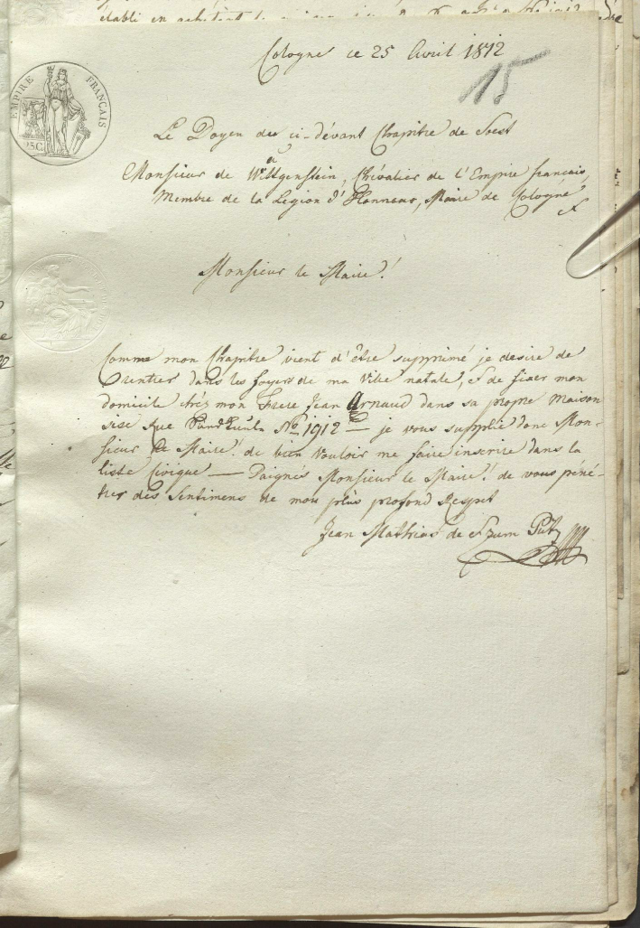 Cologne ce 25 Avril 1812
15
EMPIRE FRANÇAIS
25 C.
Le Doyen du ci-devant Chapitre de Soest
à
Monsieur de Wittgenstein, Chévalier de l'Empire français,
Membre de la Légion d'Honneur, Maire de Cologne
Monsieur le Maire!
Comme mon Chapitre vient d'être supprimé je desire de
rentrer dans les foyers de ma Ville natale, & de fixer mon
domicile chéz mon Frere Jean Arnaud dans sa propre maison
sise Rue No. 1912 — je vous supplie donc Mon-
sieur le Maire! de bien vouloir me faire inscrire dans la
liste Civique — Daignés Monsieur le Maire! de vous péné-
trer des Sentimens de mon plus profond Respet
Jean Mathias de